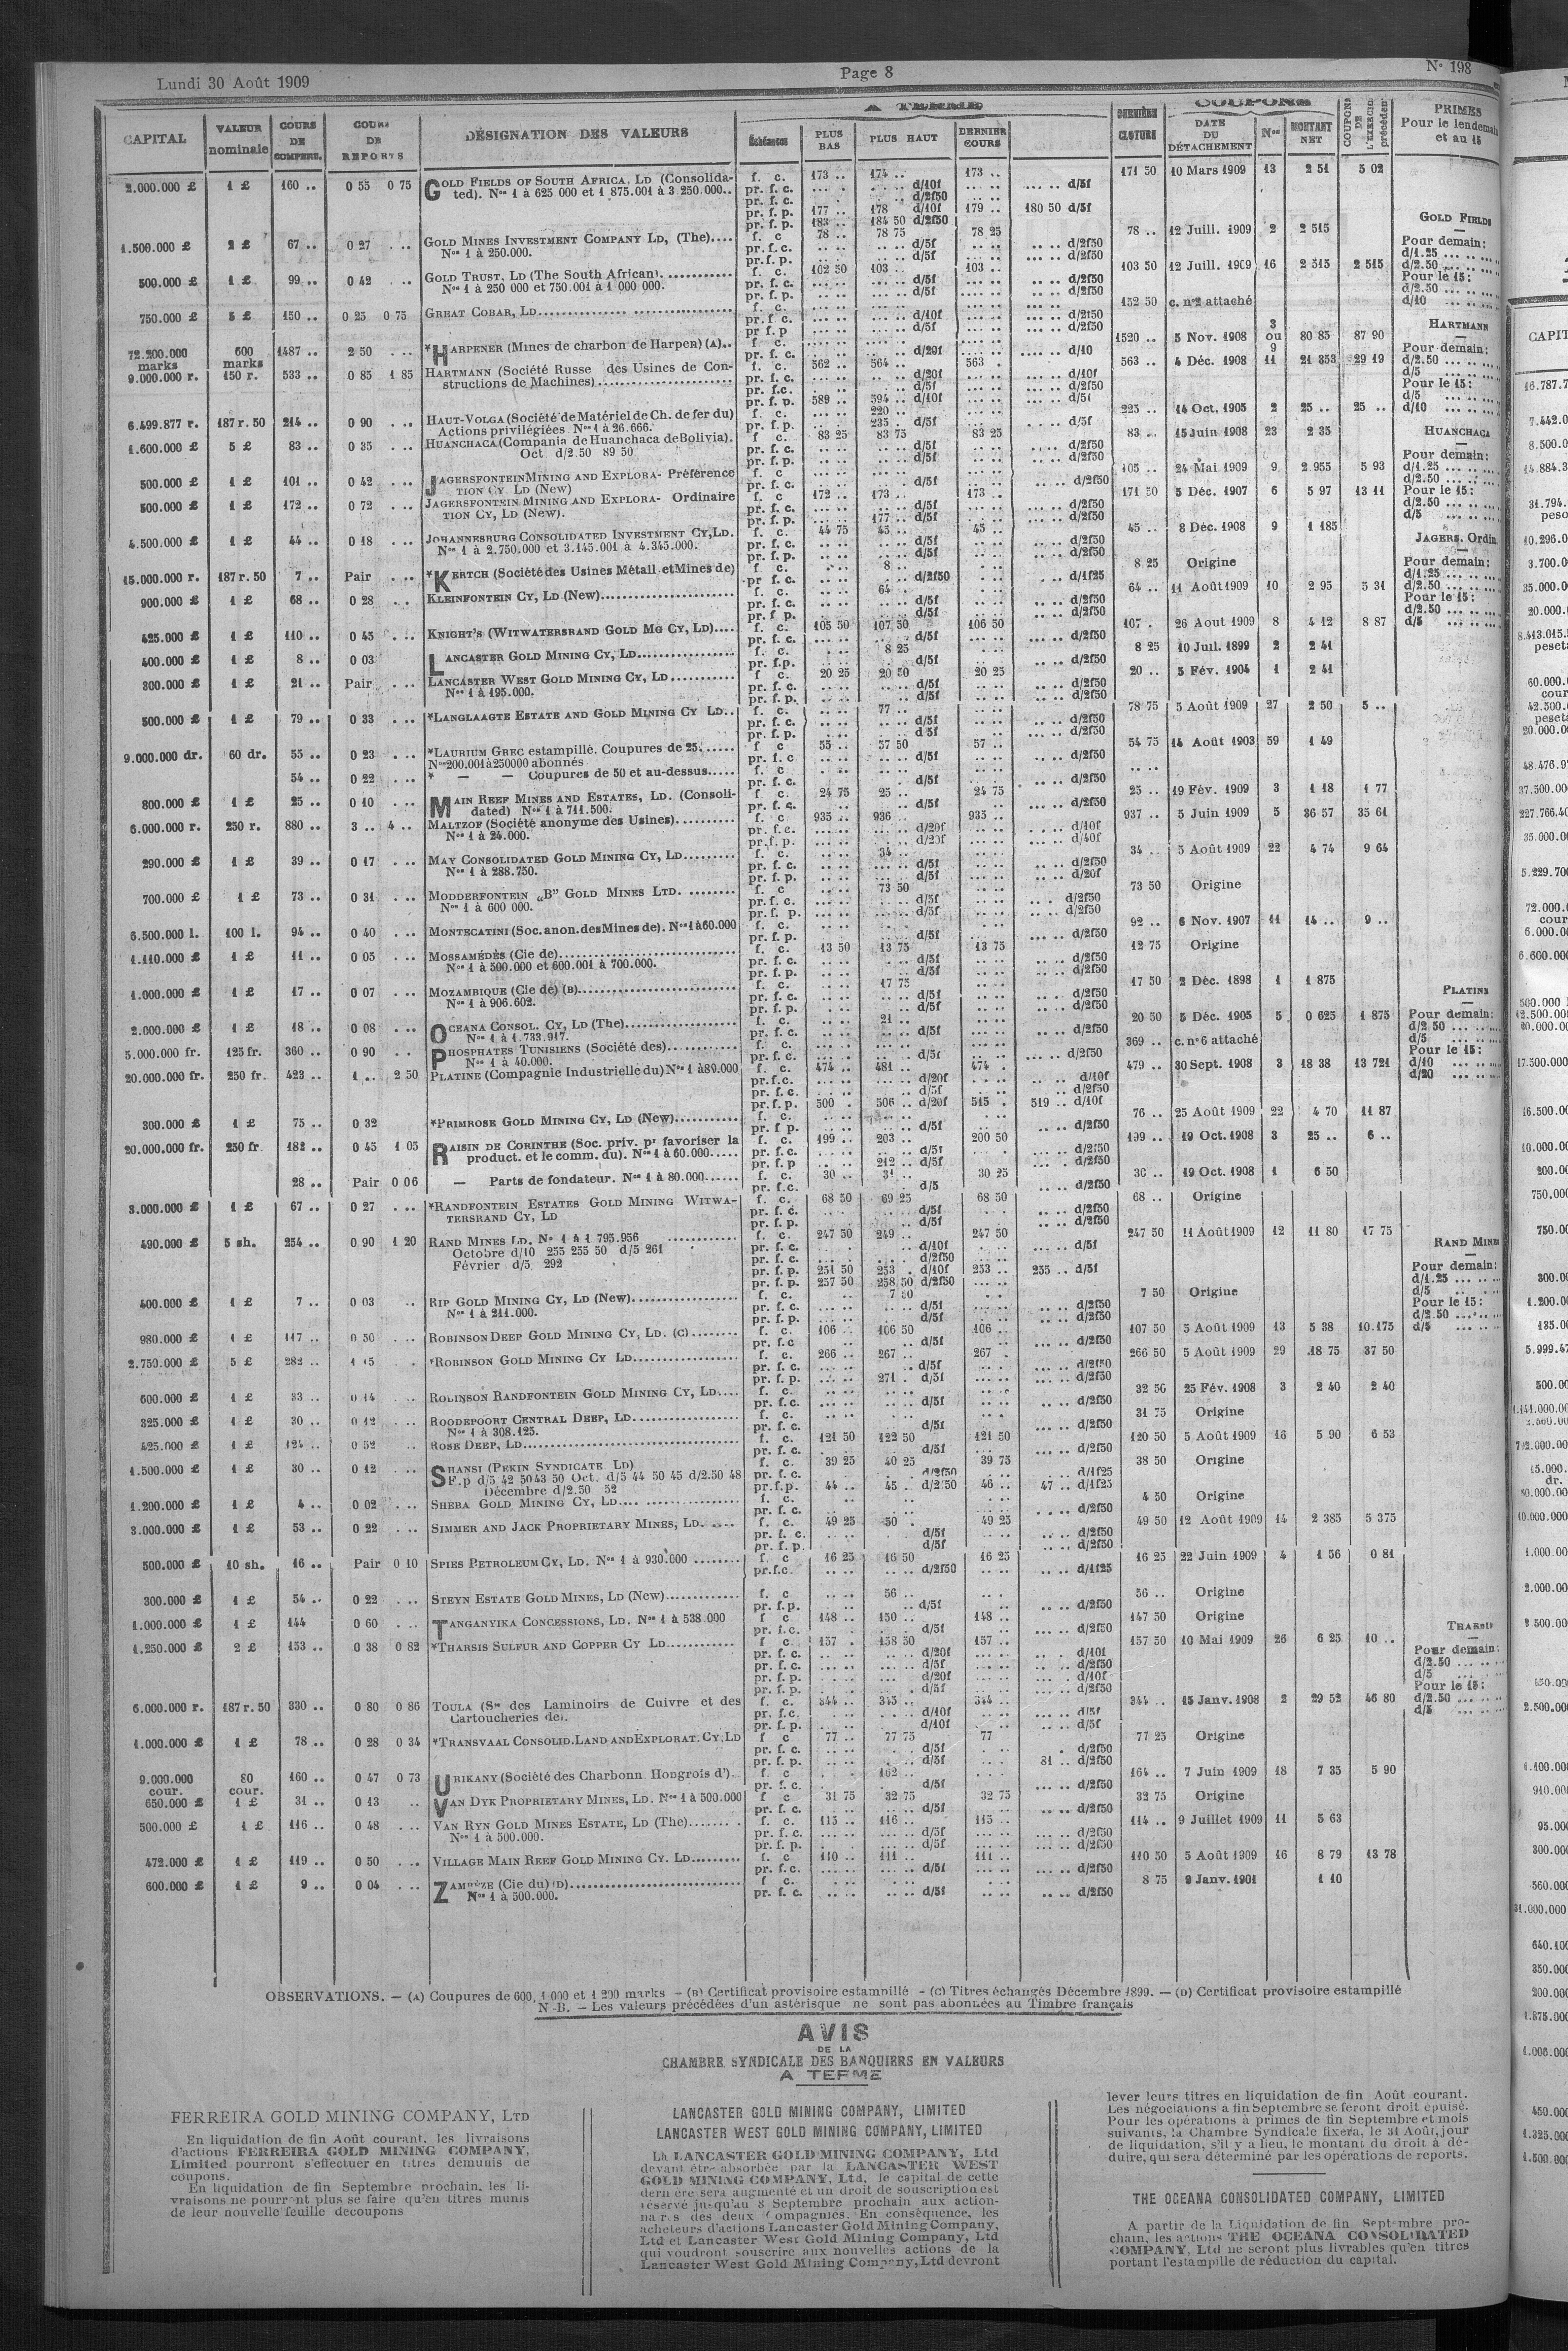 Lundi 30 Août 1909
Page 8
N° 198
CAPITAL
VALEUR nominale
COURS DE COMPENS.
COURS DE REPORTS
DÉSIGNATION DES VALEURS
A TERME
Échéances
PLUS BAS
PLUS HAUT
DERNIER COURS
DERNIÈRE CLOTURE
COUPONS
DATE DU DÉTACHEMENT
Nos
MONTANT NET
COUPONS DE L'EXERCICE précédent
PRIMES Pour le lendemain et au 15
2.000.000 £ 1 £ 160 .. 0 55 0 75 GOLD FIELDS OF SOUTH AFRICA, LD (Consolida- f. c. 173 .. 174 .. 173 .. 171 50 10 Mars 1909 13 2 51 5 02
ted). Nos 1 à 625 000 et 1 875.001 à 3 250.000.. pr. f. c. d/10f d/5f
pr. f. c. d/2f50
pr. f. p. 177 .. 178 d/10f 179 .. 180 50 d/5f
pr. f. p. 183 .. 184 50 d/2f50
1.500.000 £ 2 £ 67 .. 0 27 GOLD MINES INVESTMENT COMPANY LD, (The).... f. c 78 .. 78 75 78 25 78 .. 12 Juill. 1909 2 2 515
Nos 1 à 250.000. pr. f. c. d/5f d/2f50
pr. f. p. d/5f d/2f50
500.000 £ 1 £ 99 .. 0 42 GOLD TRUST, LD (The South African). f. c. 102 50 103 .. 103 .. 103 50 12 Juill. 1909 16 2 515 2 515
Nos 1 à 250 000 et 750.001 à 1 000 000. pr. f. c. d/5f d/2f50
pr. f. p. d/5f d/2f50
750.000 £ 5 £ 150 .. 0 25 0 75 GREAT COBAR, LD f. c. 152 50 c. n°2 attaché
pr. f. c. d/10f d/2f50
pr f. p d/5f d/2f50
72.200.000 marks 600 marks 1487 .. 2 50 *HARPENER (Mines de charbon de Harpen) (A).. f. c. 1520 .. 5 Nov. 1908 3 ou 9 80 85 87 90
pr. f. c. d/20f d/10
9.000.000 r. 150 r. 533 .. 0 85 1 85 HARTMANN (Société Russe des Usines de Con- f. c. 562 .. 564 .. 563 . 563 .. 4 Déc. 1908 11 21 353 29 19
structions de Machines) pr. f. c. d/20f d/10f
pr. f.c. d/5f d/2f50
pr. f. p. 589 .. 594 .. d/10f d/5f
6.499.877 r. 187 r. 50 214 .. 0 90 HAUT-VOLGA (Société de Matériel de Ch. de fer du) f. c. 220 .. 225 .. 14 Oct. 1905 2 25 .. 25 ..
Actions privilégiées Nos 1 à 26.666. pr. f. p. 235 . d/5f d/5f
1.600.000 £ 5 £ 83 .. 0 35 HUANCHACA (Compania de Huanchaca de Bolivia). f c. 83 25 83 75 83 25 83 .. 15 Juin 1908 23 2 35
Oct d/2.50 89 50 pr. f. c. d/5f d/2f50
pr. f. p. d/5f d/2f50
500.000 £ 1 £ 101 .. 0 42 JAGERSFONTEIN MINING AND EXPLORA- Préférence f. c 105 .. 24 Mai 1909 9 2 955 5 93
TION CY LD (New) pr. f. c. d/5f d/2f50
500.000 £ 1 £ 172 .. 0 72 JAGERSFONTEIN MINING AND EXPLORA- Ordinaire f. c 172 .. 173 .. 173 .. 171 50 5 Déc. 1907 6 5 97 13 11
TION CY, LD (New). pr. f. c. d/5f d/2f50
pr. f. p. 177 .. d/5f d/2f50
4.500.000 £ 1 £ 44 .. 0 18 JOHANNESBURG CONSOLIDATED INVESTMENT CY, LD. f. c. 44 75 45 .. 45 .. 45 .. 8 Déc. 1908 9 1 185
Nos 1 à 2.750.000 et 3.145.001 à 4.345.000. pr. f. c. d/5f d/2f50
pr. f. p. d/5f d/2f50
15.000.000 r. 187 r. 50 7 .. Pair *KERTCH (Société des Usines Métall. et Mines de) f c. 8 .. 8 25 Origine
pr f. c. d/2f50 d/1f25
900.000 £ 1 £ 68 .. 0 28 KLEINFONTEIN CY, LD (New) f. c. 64 . 64 .. 11 Août 1909 10 2 95 5 31
pr. f. c. d/5f d/2f50
pr. f. p. d/5f d/2f50
425.000 £ 1 £ 110 .. 0 45 KNIGHT'S (WITWATERSRAND GOLD MG CY, LD).... f. c. 105 50 107 50 106 50 107 . 26 Aout 1909 8 4 12 8 87
pr. f. c. d/5f d/2f50
400.000 £ 1 £ 8 .. 0 03 LANCASTER GOLD MINING CY, LD f. c. 8 25 8 25 10 Juil. 1899 2 2 41
pr. f.p. d/5f d/2f50
300.000 £ 1 £ 21 .. Pair LANCASTER WEST GOLD MINING CY, LD f c. 20 25 20 50 20 25 20 .. 5 Fév. 1904 1 2 41
Nos 1 à 195.000. pr. f. c. d/5f d/2f50
pr. f. p. d/5f d/2f50
500.000 £ 1 £ 79 .. 0 33 *LANGLAAGTE ESTATE AND GOLD MINING CY LD.. f. c. 77 .. 78 75 5 Août 1909 27 2 50 5 ..
pr. f. c. d/5f d/2f50
pr. f. p. d 5f d/2f50
9.000.000 dr. 60 dr. 55 .. 0 23 *LAURIUM GREC estampillé. Coupures de 25 f c 55 .. 57 50 57 .. 54 75 14 Août 1903 59 1 49
Nos 200.001 à 250000 abonnés pr. f. c d/5f d/2f50
54 .. 0 22 * — — Coupures de 50 et au-dessus f. c
pr. f. c. d/5f d/2f50
800.000 £ 1 £ 25 .. 0 10 MAIN REEF MINES AND ESTATES, LD. (Consoli- f c. 24 75 25 .. 24 75 25 .. 19 Fév. 1909 3 1 18 1 77
dated) Nos 1 à 711.500. pr. f. c. d/5f d/2f50
6.000.000 r. 250 r. 880 .. 3 .. 4 .. MALTZOF (Société anonyme des Usines) f. c 935 .. 936 .. 935 .. 937 .. 5 Juin 1909 5 36 57 35 61
Nos 1 à 24.000. pr. f. c. d/20f d/10f
pr. f. p. d/20f d/40f
290.000 £ 1 £ 39 .. 0 17 MAY CONSOLIDATED GOLD MINING CY, LD f. c. 34 .. 34 .. 5 Août 1909 22 4 74 9 64
Nos 1 à 288.750. pr. f. c. d/5f d/2f50
pr. f. p. d/5f d/20f
700.000 £ 1 £ 73 .. 0 31 MODDERFONTEIN „B" GOLD MINES LTD. f. c 73 50 73 50 Origine
Nos 1 à 600 000. pr. f. c. d/5f d/2f50
pr. f. p. d/5f d/2f50
6.500.000 l. 100 l. 94 .. 0 40 MONTECATINI (Soc. anon. des Mines de). Nos 1 à 60.000 f. c. 92 .. 6 Nov. 1907 11 14 .. 9 ..
pr. f. p. d/5f d/2f50
1.110.000 £ 1 £ 11 .. 0 05 MOSSAMÉDÈS (Cie de) f. c. 13 50 13 75 13 75 12 75 Origine
Nos 1 à 500.000 et 600.001 à 700.000. pr. f. c. d/5f d/2f50
pr. f. p. d/5f d/2f50
1.000.000 £ 1 £ 17 .. 0 07 MOZAMBIQUE (Cie de) (B) f. c. 17 75 17 50 2 Déc. 1898 1 1 875
Nos 1 à 906.602. pr. f. c. d/5f d/2f50
pr. f. p. d/5f d/2f50
2.000.000 £ 1 £ 18 .. 0 08 OCEANA CONSOL. CY, LD (The) f. c. 21 .. 20 50 5 Déc. 1905 5 0 625 1 875
Nos 1 à 1.733.917. pr. f. c. d/5f d/2f50
5.000.000 fr. 125 fr. 360 .. 0 90 PHOSPHATES TUNISIENS (Société des) f. c. 369 .. c. n°6 attaché
Nos 1 à 40.000. pr. f. c. d/5f d/2f50
20.000.000 fr. 250 fr. 423 .. 1 .. 2 50 PLATINE (Compagnie Industrielle du) Nos 1 à 80.000 f. c. 474 .. 481 .. 474 . 479 .. 30 Sept. 1908 3 18 38 13 721
pr.f.c. d/20f d/10f
pr. f. c. d/5f d/2f50
pr. f. p. 500 . 506 .. d/20f 515 . 519 .. d/10f
300.000 £ 1 £ 75 .. 0 32 *PRIMROSE GOLD MINING CY, LD (New) f. c. 76 .. 25 Août 1909 22 4 70 11 87
pr. f p. d/5f d/2f50
20.000.000 fr. 250 fr. 182 .. 0 45 1 05 RAISIN DE CORINTHE (Soc. priv. pr favoriser la f. c. 199 .. 203 .. 200 50 199 .. 19 Oct. 1908 3 25 .. 6 ..
product. et le comm. du). Nos 1 à 60.000 pr. f. c. d/5f d/2f50
pr. f. p 212 .. d/5f d/2f50
28 .. Pair 0 06 — Parts de fondateur. Nos 1 à 80.000 f. c. 30 .. 31 .. 30 25 30 .. 19 Oct. 1908 1 6 50
pr. f.c. d/5 d/2f50
3.000.000 £ 1 £ 67 .. 0 27 *RANDFONTEIN ESTATES GOLD MINING WITWA- f. c. 68 50 69 25 68 50 68 .. Origine
TERSRAND CY, LD pr. f. c. d/5f d/2f50
pr. f. p. d/5f d/2f50
490.000 £ 5 sh. 254 .. 0 90 1 20 RAND MINES LD. Nos 1 à 1 795.956 f. c. 247 50 249 .. 247 50 247 50 11 Août 1909 12 11 80 17 75
Octobre d/10 255 255 50 d/5 261 pr. f. c. d/10f d/5f
Février d/5 292 pr. f. c. d/2f50
pr. f. p. 251 50 253 . d/10f 253 .. 255 .. d/5f
pr. f. p. 257 50 258 50 d/2f50
400.000 £ 1 £ 7 .. 0 03 RIP GOLD MINING CY, LD (New) f. c. 7 50 7 50 Origine
Nos 1 à 211.000. pr. f. c. d/5f d/2f50
pr. f. p. d/5f d/2f50
980.000 £ 1 £ 117 .. 0 50 ROBINSON DEEP GOLD MINING CY, LD. (C) f. c. 106 .. 106 50 106 .. 107 50 5 Août 1909 13 5 38 10.175
pr. f. c d/5f d/2f50
2.750.000 £ 5 £ 282 .. 1 15 *ROBINSON GOLD MINING CY LD f. c. 266 .. 267 .. 267 . 266 50 5 Août 1909 29 18 75 37 50
pr. f. c. d/5f d/2f50
pr. f. p. 271 . d/5f d/2f50
600.000 £ 1 £ 33 .. 0 14 ROBINSON RANDFONTEIN GOLD MINING CY, LD.... f. c. 32 50 25 Fév. 1908 3 2 40 2 40
pr. f. c. d/5f d/2f50
325.000 £ 1 £ 30 .. 0 12 ROODEPOORT CENTRAL DEEP, LD f. c. 31 75 Origine
Nos 1 à 308.125. pr. f. c. d/5f d/2f50
425.000 £ 1 £ 124 .. 0 52 ROSE DEEP, LD f. c. 121 50 122 50 121 50 120 50 5 Août 1909 16 5 90 6 53
pr. f. c. d/5f d/2f50
1.500.000 £ 1 £ 30 .. 0 12 SHANSI (PEKIN SYNDICATE LD) f. c. 39 25 40 25 39 75 38 50 Origine
F.p d/5 42 50 43 50 Oct. d/5 44 50 45 d/2.50 48 pr. f. c. d/2f50 d/1f25
Décembre d/2.50 52 pr.f.p. 44 .. 45 . d/2 50 46 .. 47 .. d/1f25
1.200.000 £ 1 £ 4 .. 0 02 SHEBA GOLD MINING CY, LD f. c. 4 50 Origine
pr. f. c. d/2f50
3.000.000 £ 1 £ 53 .. 0 22 SIMMER AND JACK PROPRIETARY MINES, LD. f. c. 49 25 50 . 49 25 49 50 12 Août 1909 14 2 385 5 375
pr. f. c. d/5f d/2f50
pr. f. p. d/5f d/2f50
500.000 £ 10 sh. 16 .. Pair 0 10 SPIES PETROLEUM CY, LD. Nos 1 à 930.000 f. c 16 25 16 50 16 25 16 25 22 Juin 1909 4 1 56 0 81
pr.f.c. d/2f50 d/1f25
300.000 £ 1 £ 54 .. 0 22 STEYN ESTATE GOLD MINES, LD (New) f. c 56 .. 56 .. Origine
pr. f.p. d/5f d/2f50
1.000.000 £ 1 £ 144 0 60 TANGANYIKA CONCESSIONS, LD. Nos 1 à 538.000 f c 148 .. 150 .. 148 .. 147 50 Origine
pr. f.c. d/5f d/2f50
1.250.000 £ 2 £ 153 .. 0 38 0 82 *THARSIS SULFUR AND COPPER CY LD f. c. 157 . 158 50 157 .. 157 50 10 Mai 1909 26 6 25 10 ..
pr. f. c. d/20f d/10f
pr. f. c. d/5f d/2f50
pr. f. p. d/20f d/10f
pr. f. p. d/5f d/2f50
6.000.000 r. 187 r. 50 330 .. 0 80 0 86 TOULA (Sté des Laminoirs de Cuivre et des f. c. 344 .. 345 .. 344 .. 344 .. 15 Janv. 1908 2 29 52 46 80
Cartoucheries de). pr. f.c. d/10f d/5f
pr. f. p. d/10f d/5f
1.000.000 £ 1 £ 78 .. 0 28 0 34 *TRANSVAAL CONSOLID. LAND AND EXPLORAT. CY, LD f c 77 .. 77 75 77 77 25 Origine
pr. f. c. d/5f d/2f50
pr. f. p. d/5f 81 .. d/2f50
9.000.000 cour. 80 cour. 160 .. 0 47 0 73 URIKANY (Société des Charbonn. Hongrois d'). f. c 162 .. 164 .. 7 Juin 1909 18 7 35 5 90
pr. f. c. d/5f d/2f50
650.000 £ 1 £ 31 .. 0 13 VAN DYK PROPRIETARY MINES, LD. Nos 1 à 500.000 f c 31 75 32 75 32 75 32 75 Origine
pr. f. c. d/5f d/2f50
500.000 £ 1 £ 116 .. 0 48 VAN RYN GOLD MINES ESTATE, LD (The) f. c. 115 .. 116 .. 115 .. 114 .. 9 Juillet 1909 11 5 63
Nos 1 à 500.000. pr. f. c. d/5f d/2f50
pr. f. p. d/5f d/2f50
472.000 £ 1 £ 119 .. 0 50 VILLAGE MAIN REEF GOLD MINING CY. LD f. c 110 .. 111 .. 111 .. 110 50 5 Août 1909 16 8 79 13 78
pr. f.c. d/5f d/2f50
600.000 £ 1 £ 9 .. 0 04 ZAMBÈZE (Cie du) (D) f c. 8 75 9 Janv. 1901 1 10
Nos 1 à 500.000. pr. f. c. d/5f d/2f50
GOLD FIELDS
Pour demain:
d/1.25
d/2.50
Pour le 15:
d/2.50
d/10
HARTMANN
Pour demain:
d/2.50
d/5
Pour le 15:
d/5
d/10
HUANCHACA
Pour demain:
d/1.25
d/2.50
Pour le 15:
d/2.50
d/5
JAGERS. Ordin.
Pour demain:
d/1.25
d/2.50
Pour le 15:
d/2.50
d/5
PLATINE
Pour demain:
d/2 50
d/5
Pour le 15:
d/10
d/20
RAND MINES
Pour demain:
d/1.25
d/5
Pour le 15:
d/2.50
d/5
THARSIS
Pour demain:
d/2.50
d/5
Pour le 15:
d/2.50
d/5
OBSERVATIONS. — (A) Coupures de 600, 1 000 et 1 200 marks — (B) Certificat provisoire estampillé — (C) Titres échangés Décembre 1899. — (D) Certificat provisoire estampillé
N.-B. — Les valeurs précédées d'un astérisque ne sont pas abonnées au Timbre français
AVIS
DE LA
CHAMBRE SYNDICALE DES BANQUIERS EN VALEURS
A TERME
FERREIRA GOLD MINING COMPANY, LTD
En liquidation de fin Août courant, les livraisons
d'actions FERREIRA GOLD MINING COMPANY,
Limited pourront s'effectuer en titres démunis de
coupons.
En liquidation de fin Septembre prochain, les li-
vraisons ne pourront plus se faire qu'en titres munis
de leur nouvelle feuille de coupons
LANCASTER GOLD MINING COMPANY, LIMITED
LANCASTER WEST GOLD MINING COMPANY, LIMITED
La LANCASTER GOLD MINING COMPANY, Ltd
devant être absorbée par la LANCASTER WEST
GOLD MINING COMPANY, Ltd, le capital de cette
dernière sera augmenté et un droit de souscription est
réservé jusqu'au 8 Septembre prochain aux action-
naires des deux Compagnies. En conséquence, les
acheteurs d'actions Lancaster Gold Mining Company,
Ltd et Lancaster West Gold Mining Company, Ltd
qui voudront souscrire aux nouvelles actions de la
Lancaster West Gold Mining Company, Ltd devront
lever leurs titres en liquidation de fin Août courant.
Les négociations à fin Septembre se feront droit épuisé.
Pour les opérations à primes de fin Septembre et mois
suivants, la Chambre Syndicale fixera, le 31 Août, jour
de liquidation, s'il y a lieu, le montant du droit à dé-
duire, qui sera déterminé par les opérations de reports.
THE OCEANA CONSOLIDATED COMPANY, LIMITED
A partir de la Liquidation de fin Septembre pro-
chain, les actions THE OCEANA CONSOLIDATED
COMPANY, Ltd ne seront plus livrables qu'en titres
portant l'estampille de réduction du capital.